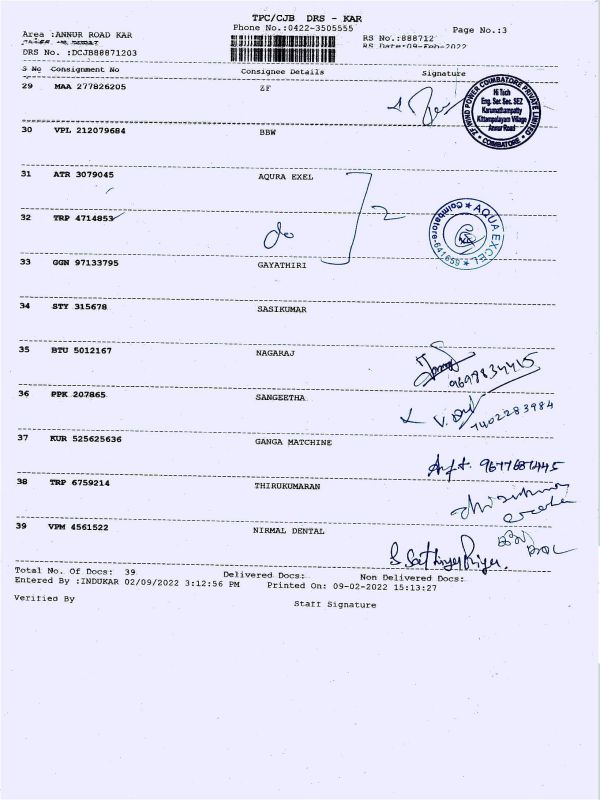 TPC/CJB DRS - KAR
Area :ANNUR ROAD KAR Phone No.:0422-3505555 Page No.:3
RS No.:888712
DRS No. :DCJB88871203 RS Date:09-Feb-2022
S No Consignment No Consignee Details Signature
29 MAA 277826205 ZF
ZF WIND POWER COIMBATORE PRIVATE LIMITED
Hi Tech
Eng. Sec Sec. SEZ
Karumathampatty
Kittampalayam Village
Annur Road
* COIMBATORE *
30 VPL 212079684 BBW
31 ATR 3079045 AQURA EXEL
32 TRP 4714853 do 2
* AQUA EXCEL * Coimbatore-641659
33 GGN 97133795 GAYATHIRI
34 STY 315678 SASIKUMAR
35 BTU 5012167 NAGARAJ
9698834415
36 PPK 207865 SANGEETHA
7402283984
37 KUR 525625636 GANGA MATCHINE
9677687445
38 TRP 6759214 THIRUKUMARAN
39 VPM 4561522 NIRMAL DENTAL
Total No. Of Docs: 39 Delivered Docs: Non Delivered Docs:
Entered By :INDUKAR 02/09/2022 3:12:56 PM Printed On: 09-02-2022 15:13:27
Verified By Staff Signature